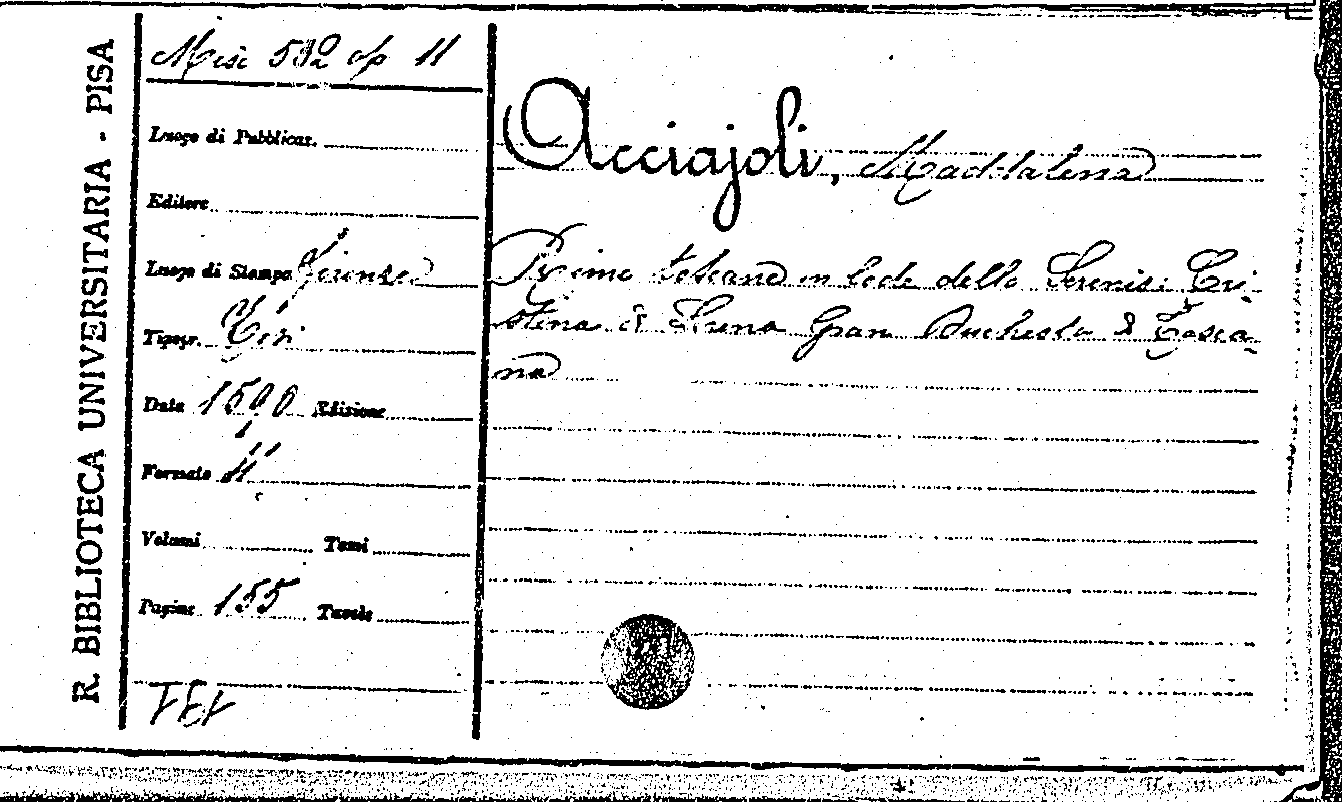 R. BIBLIOTECA UNIVERSITARIA - PISA
Misc 532 op 11
Luogo di Pubblicaz.
Editore
Luogo di Stampa Firenze
Tipogr. Tosi
Data 1590 Edizione
Formato 4°
Volumi Tomi
Pagine 155 Tavole
Acciajoli, Maddalena
Rime toscane in lode della Sereniss: Cri-
stina di Gran Duchessa di Tosca-
na